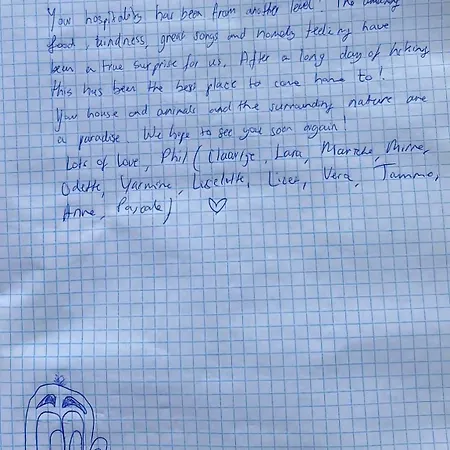 Your hospitality has been from another level! The amazing
food, kindness, great songs and homely feeling have
been a true surprise for us. After a long day of hiking
this has been the best place to come home to!
Your house and animals and the surrounding nature are
a paradise. We hope to see you soon again!
Lots of love, Phil (Claartje, Lara, Marieke, Minne,
Odette, Yasmine, Liselotte, Lizet, Vera, Tammo,
Anne, Pascale)